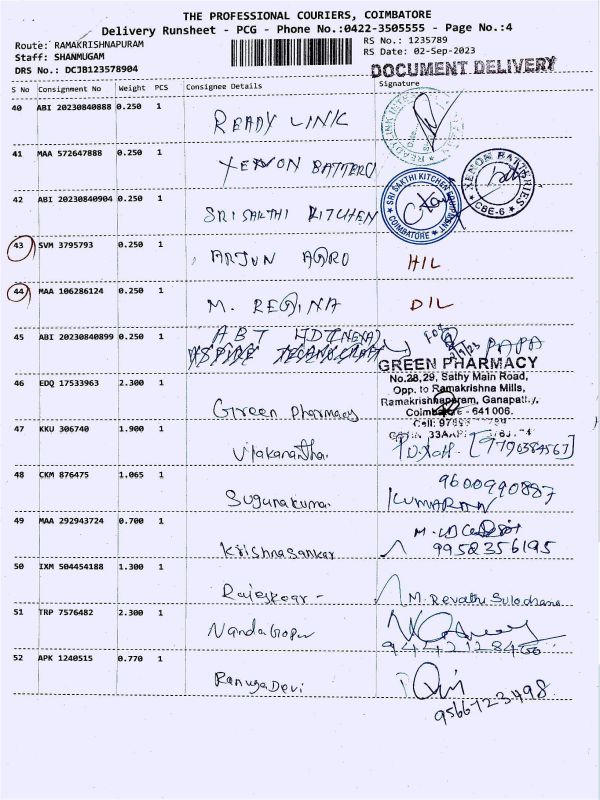 THE PROFESSIONAL COURIERS, COIMBATORE
Delivery Runsheet - PCG - Phone No.:0422-3505555 - Page No.:4
Route: RAMAKRISHNAPURAM
Staff: SHANMUGAM
DRS No.: DCJB123578904
RS No.: 1235789
RS Date: 02-Sep-2023
DOCUMENT DELIVERY
S No Consignment No Weight PCS Consignee Details Signature
40 ABI 20230840888 0.250 1 READY LINK
41 MAA 572647888 0.250 1 XENON BATTERY
XENON BATTERIES
CBE-6
42 ABI 20230840904 0.250 1 SRI SAKTHI KITCHEN
SRI SAKTHI KITCHEN EQUIPMENT
COIMBATORE
43 SVM 3795793 0.250 1 ARJUN AGRO HIL
44 MAA 106286124 0.250 1 M. REGINA DIL
45 ABI 20230840899 0.250 1 ABT PAPA
GREEN PHARMACY
No.28,29, Sathy Main Road,
Opp. to Ramakrishna Mills,
Ramakrishnapuram, Ganapathy,
Coimbatore - 641 006.
46 EDQ 17533963 2.300 1 Green Pharmacy
47 KKU 306740 1.900 1
48 CKM 876475 1.065 1 Sugunakumar KUMARAN
9600990887
49 MAA 292943724 0.700 1 Krishnasankar
9952356195
50 IXM 504454188 1.300 1 M. Revathi Sulochana
51 TRP 7576482 2.300 1 NandaGopur
52 APK 1240515 0.770 1 RanugaDevi
9566123498